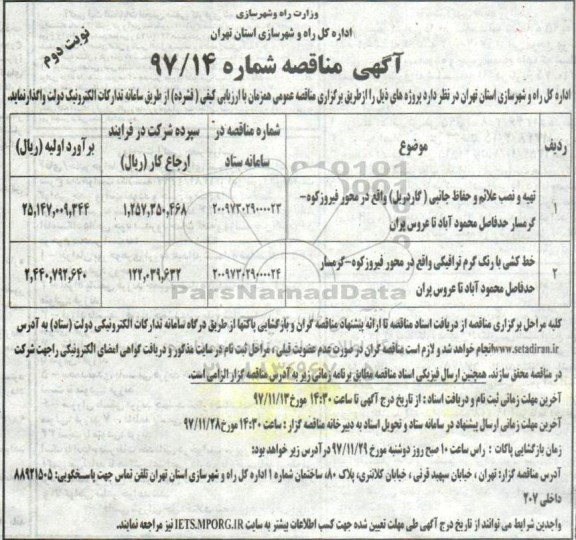 وزارت راه و شهرسازی
اداره کل راه و شهرسازی استان تهران
نوبت دوم
آگهی مناقصه شماره ۹۷/۱۴
اداره کل راه و شهرسازی استان تهران در نظر دارد پروژه های ذیل را ازطریق برگزاری مناقصه عمومی همزمان با ارزیابی کیفی (فشرده) از طریق سامانه تدارکات الکترونیک دولت واگذارنماید.
ردیف موضوع شماره مناقصه در سامانه ستاد سپرده شرکت در فرایند ارجاع کار (ریال) برآورد اولیه (ریال)
۱ تهیه و نصب علائم و حفاظ جانبی (گاردریل) واقع در محور فیروزکوه- گرمسار حدفاصل محمود آباد تا عروس پران ۲۰۰۹۷۳۰۲۹۰۰۰۰۲۳ ۱,۲۵۷,۳۵۰,۴۶۸ ۲۵,۱۴۷,۰۰۹,۳۴۴
۲ خط کشی با رنگ گرم ترافیکی واقع در محور فیروزکوه-گرمسار حدفاصل محمود آباد تا عروس پران ۲۰۰۹۷۳۰۲۹۰۰۰۰۲۴ ۱۲۲,۰۳۹,۶۳۲ ۲,۴۴۰,۷۹۲,۶۴۰
ParsNamadData
کلیه مراحل برگزاری مناقصه از دریافت اسناد مناقصه تا ارائه پیشنهاد مناقصه گران و بازگشایی پاکتها از طریق درگاه سامانه تدارکات الکترونیکی دولت (ستاد) به آدرس
www.setadiran.ir انجام خواهد شد و لازم است مناقصه گران در صورت عدم عضویت قبلی، مراحل ثبت نام در سایت مذکور و دریافت گواهی امضای الکترونیکی راجهت شرکت
در مناقصه محقق سازند. همچنین ارسال فیزیکی اسناد مناقصه مطابق برنامه زمانی زیر به آدرس مناقصه گزار الزامی است.
آخرین مهلت زمانی ثبت نام و دریافت اسناد: از تاریخ درج آگهی تا ساعت ۱۴:۳۰ مورخ ۹۷/۱۱/۱۳
آخرین مهلت زمانی ارسال پیشنهاد در سامانه ستاد و تحویل اسناد به دبیرخانه مناقصه گزار: ساعت ۱۴:۳۰ مورخ ۹۷/۱۱/۲۸
زمان بازگشایی پاکات : راس ساعت ۱۰ صبح روز دوشنبه مورخ ۹۷/۱۱/۲۹ درآدرس زیر خواهد بود:
آدرس مناقصه گزار: تهران ، خیابان سپهبد قرنی ، خیابان کلانتری، پلاک ۸۰، ساختمان شماره ۱ اداره کل راه و شهرسازی استان تهران تلفن تماس جهت پاسخگویی: ۸۸۹۲۱۵۰۵
داخلی ۲۰۷
واجدین شرایط می توانند از تاریخ درج آگهی طی مهلت تعیین شده جهت کسب اطلاعات بیشتر به سایت IETS.MPORG.IR نیز مراجعه نمایند.